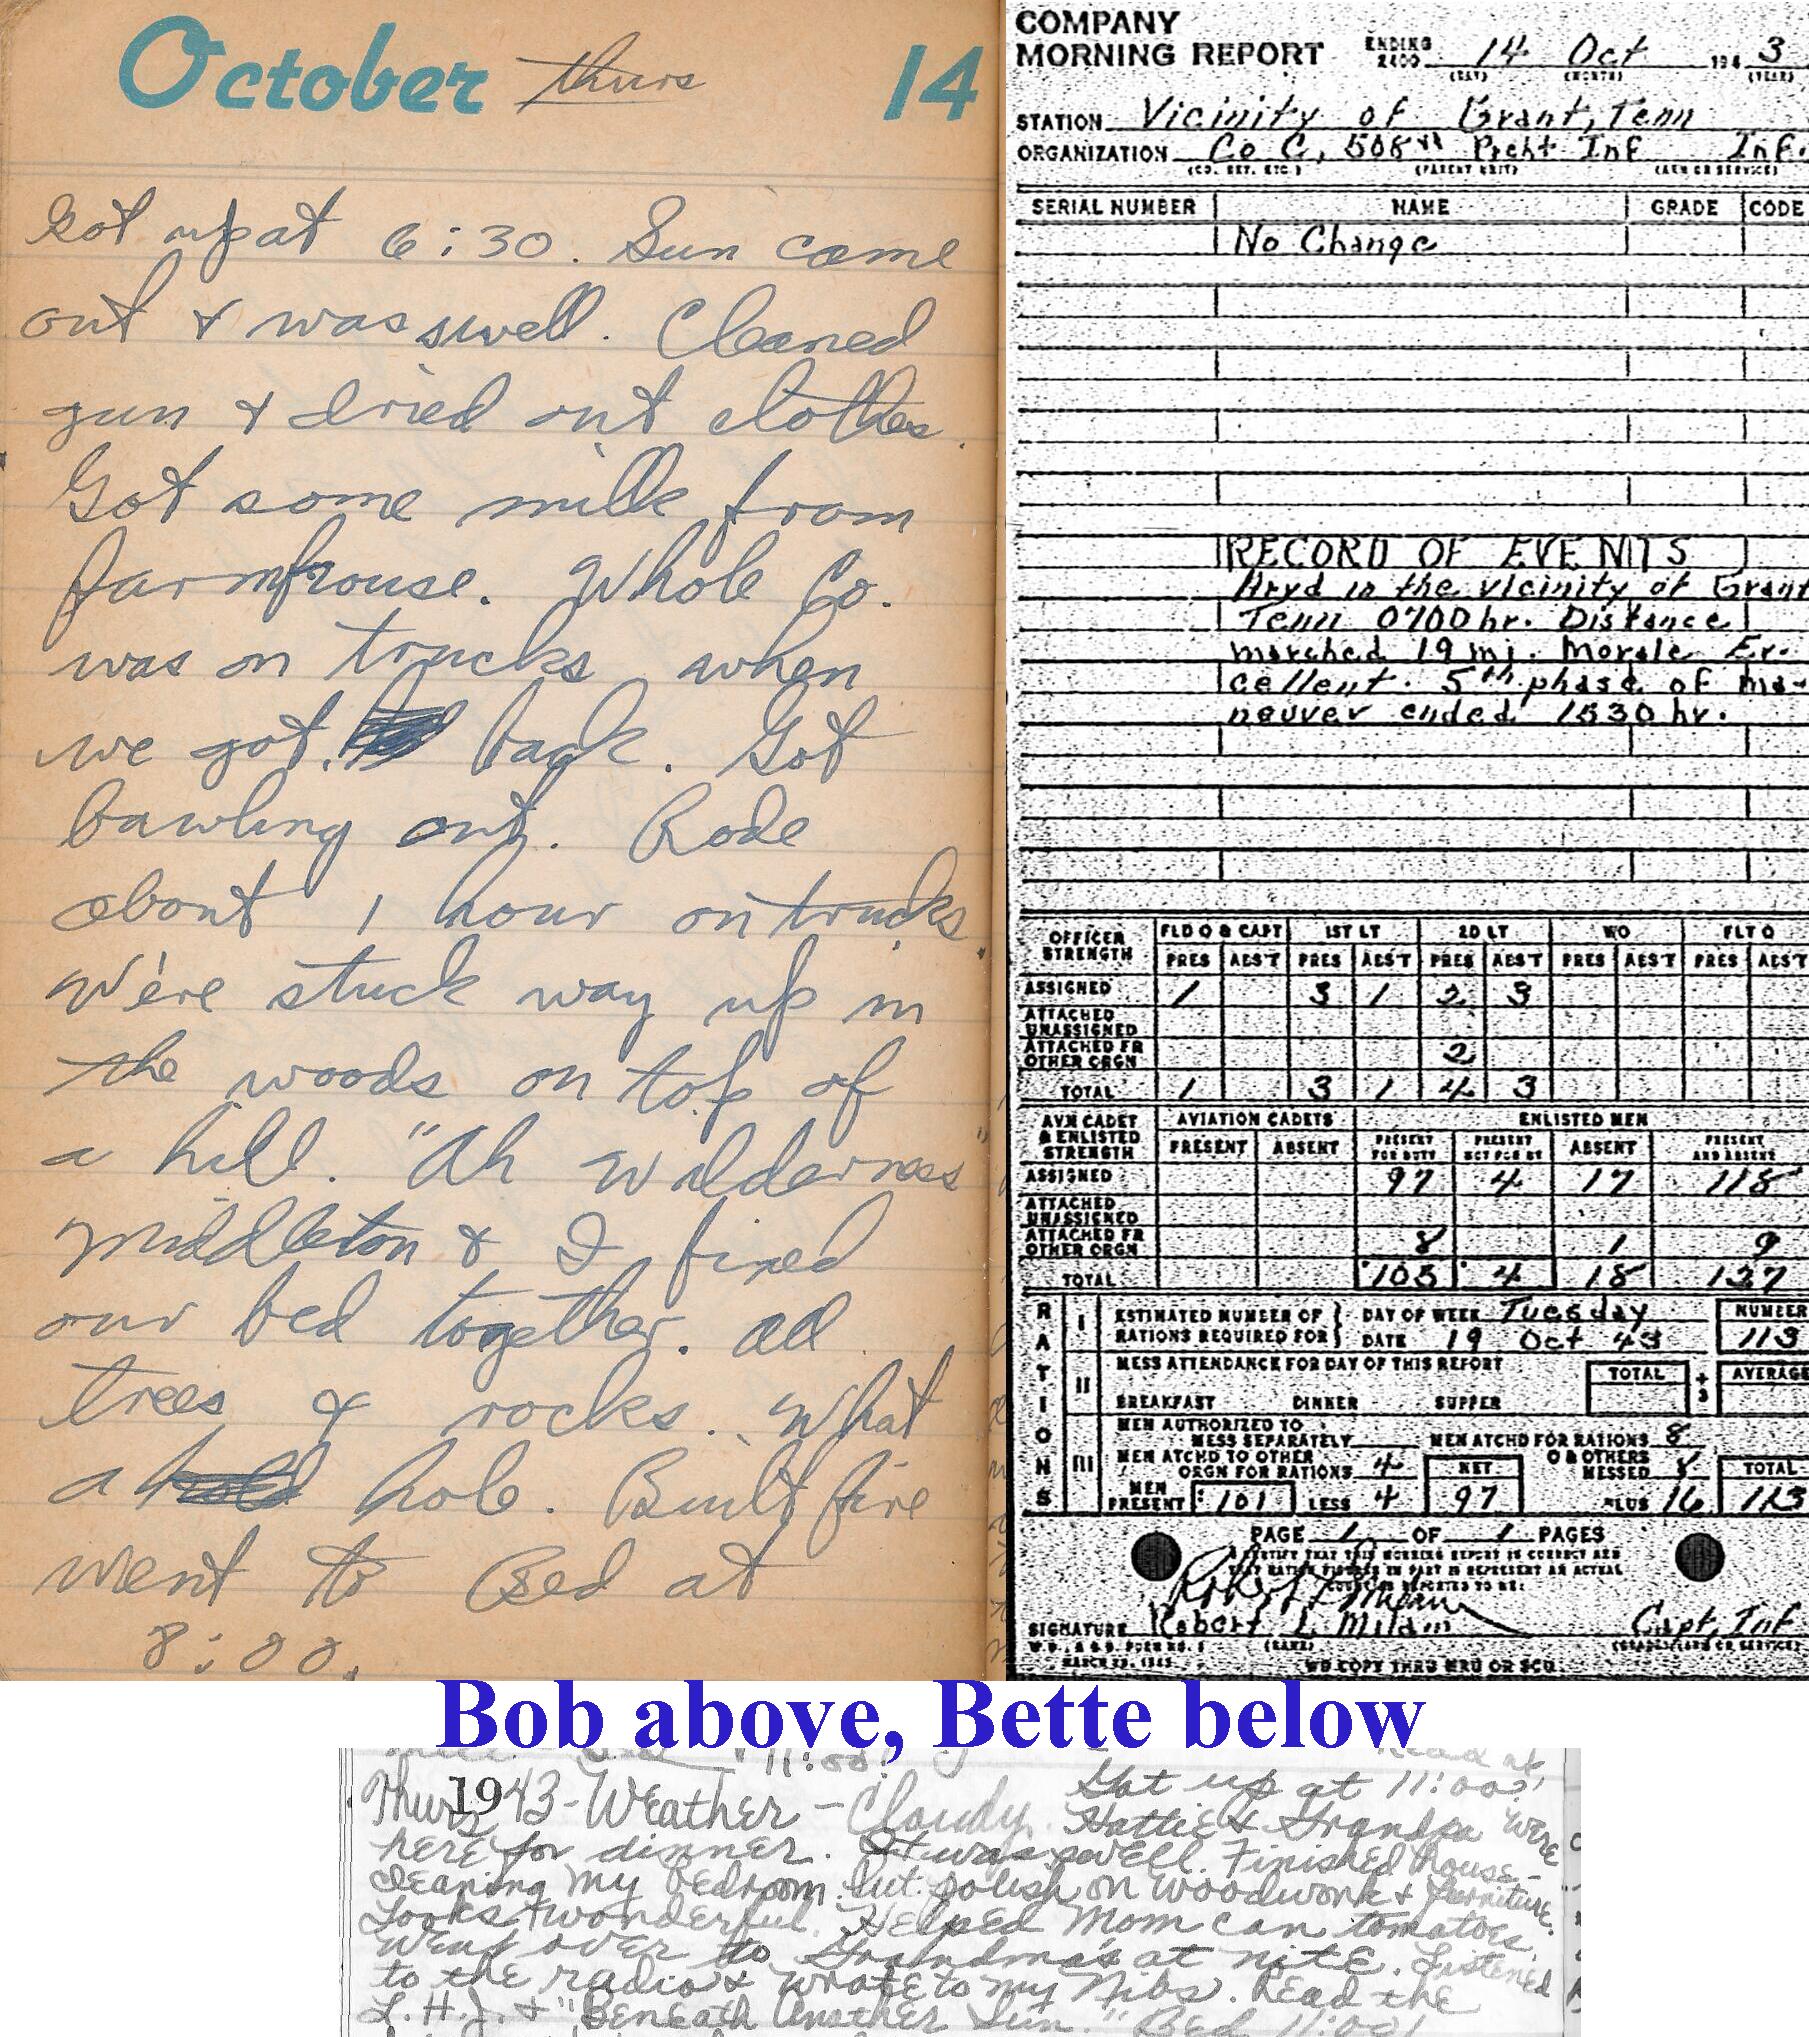 October thurs 14
Got up at 6:30. Sun came
out & was swell. Cleaned
gun & dried out clothes.
Got some milk from
farmhouse. Whole Co.
was on trucks when
we got back. Got
bawling out. Rode
about 1 hour on trucks.
We're stuck way up in
the woods on top of
a hill. "Ah wilderness"
Middleton & I fixed
our bed together. All
trees & rocks. What
a hole. Built fire
went to Bed at
8:00.
COMPANY
MORNING REPORT ENDING 2400 14 Oct 194 3
(DAY) (MONTH) (YEAR)
STATION Vicinity of Grant, Tenn
ORGANIZATION Co C, 508th Prcht Inf Inf.
(CO. DET. ETC.) (PARENT UNIT) (ARM OR SERVICE)
SERIAL NUMBER NAME GRADE CODE
No Change
RECORD OF EVENTS
Aryd in the vicinity of Grant
Tenn 0700 hr. Distance
marched 19 mi. Morale Ex-
cellent. 5th phase of ma-
neuver ended 1530 hr.
OFFICER STRENGTH FLD O & CAPT 1ST LT 2D LT WO FLT O
PRES ABS'T PRES ABS'T PRES ABS'T PRES ABS'T PRES ABS'T
ASSIGNED 1 3 1 2 3
ATTACHED UNASSIGNED
ATTACHED FR OTHER ORGN 2
TOTAL 1 3 1 4 3
AVN CADET & ENLISTED STRENGTH AVIATION CADETS ENLISTED MEN
PRESENT ABSENT PRESENT FOR DUTY PRESENT NOT FOR DY ABSENT PRESENT AND ABSENT
ASSIGNED 97 4 17 118
ATTACHED UNASSIGNED
ATTACHED FR OTHER ORGN 8 1 9
TOTAL 105 4 18 127
RATIONS
I ESTIMATED NUMBER OF RATIONS REQUIRED FOR DAY OF WEEK Tuesday NUMBER
DATE 19 Oct 43 113
II MESS ATTENDANCE FOR DAY OF THIS REPORT TOTAL ÷ 3 AVERAGE
BREAKFAST DINNER SUPPER
III MEN AUTHORIZED TO MESS SEPARATELY MEN ATCHD FOR RATIONS 8
MEN ATCHD TO OTHER ORGN FOR RATIONS 4 NET O & OTHERS MESSED 8 TOTAL
MEN PRESENT 101 LESS 4 97 PLUS 16 113
PAGE 1 OF 1 PAGES
I CERTIFY THAT THIS MORNING REPORT IS CORRECT AND
SIGNATURE Robert L Milam Capt, Inf
(NAME)
WD COPY THRU MRU OR SCU
Bob above, Bette below
11:00!
Got up at 11:00!
Thurs 1943 - Weather - Cloudy. Hattie & Grandpa were
here for dinner. It was swell. Finished house-
cleaning my bedroom. Put polish on woodwork & furniture.
Looks wonderful. Helped Mom can tomatoes.
Went over to Grandma's at nite. Listened
to the radio & wrote to my Nibs. Read the
L.H.J. & "Beneath Another Sun." Bed 11:00!